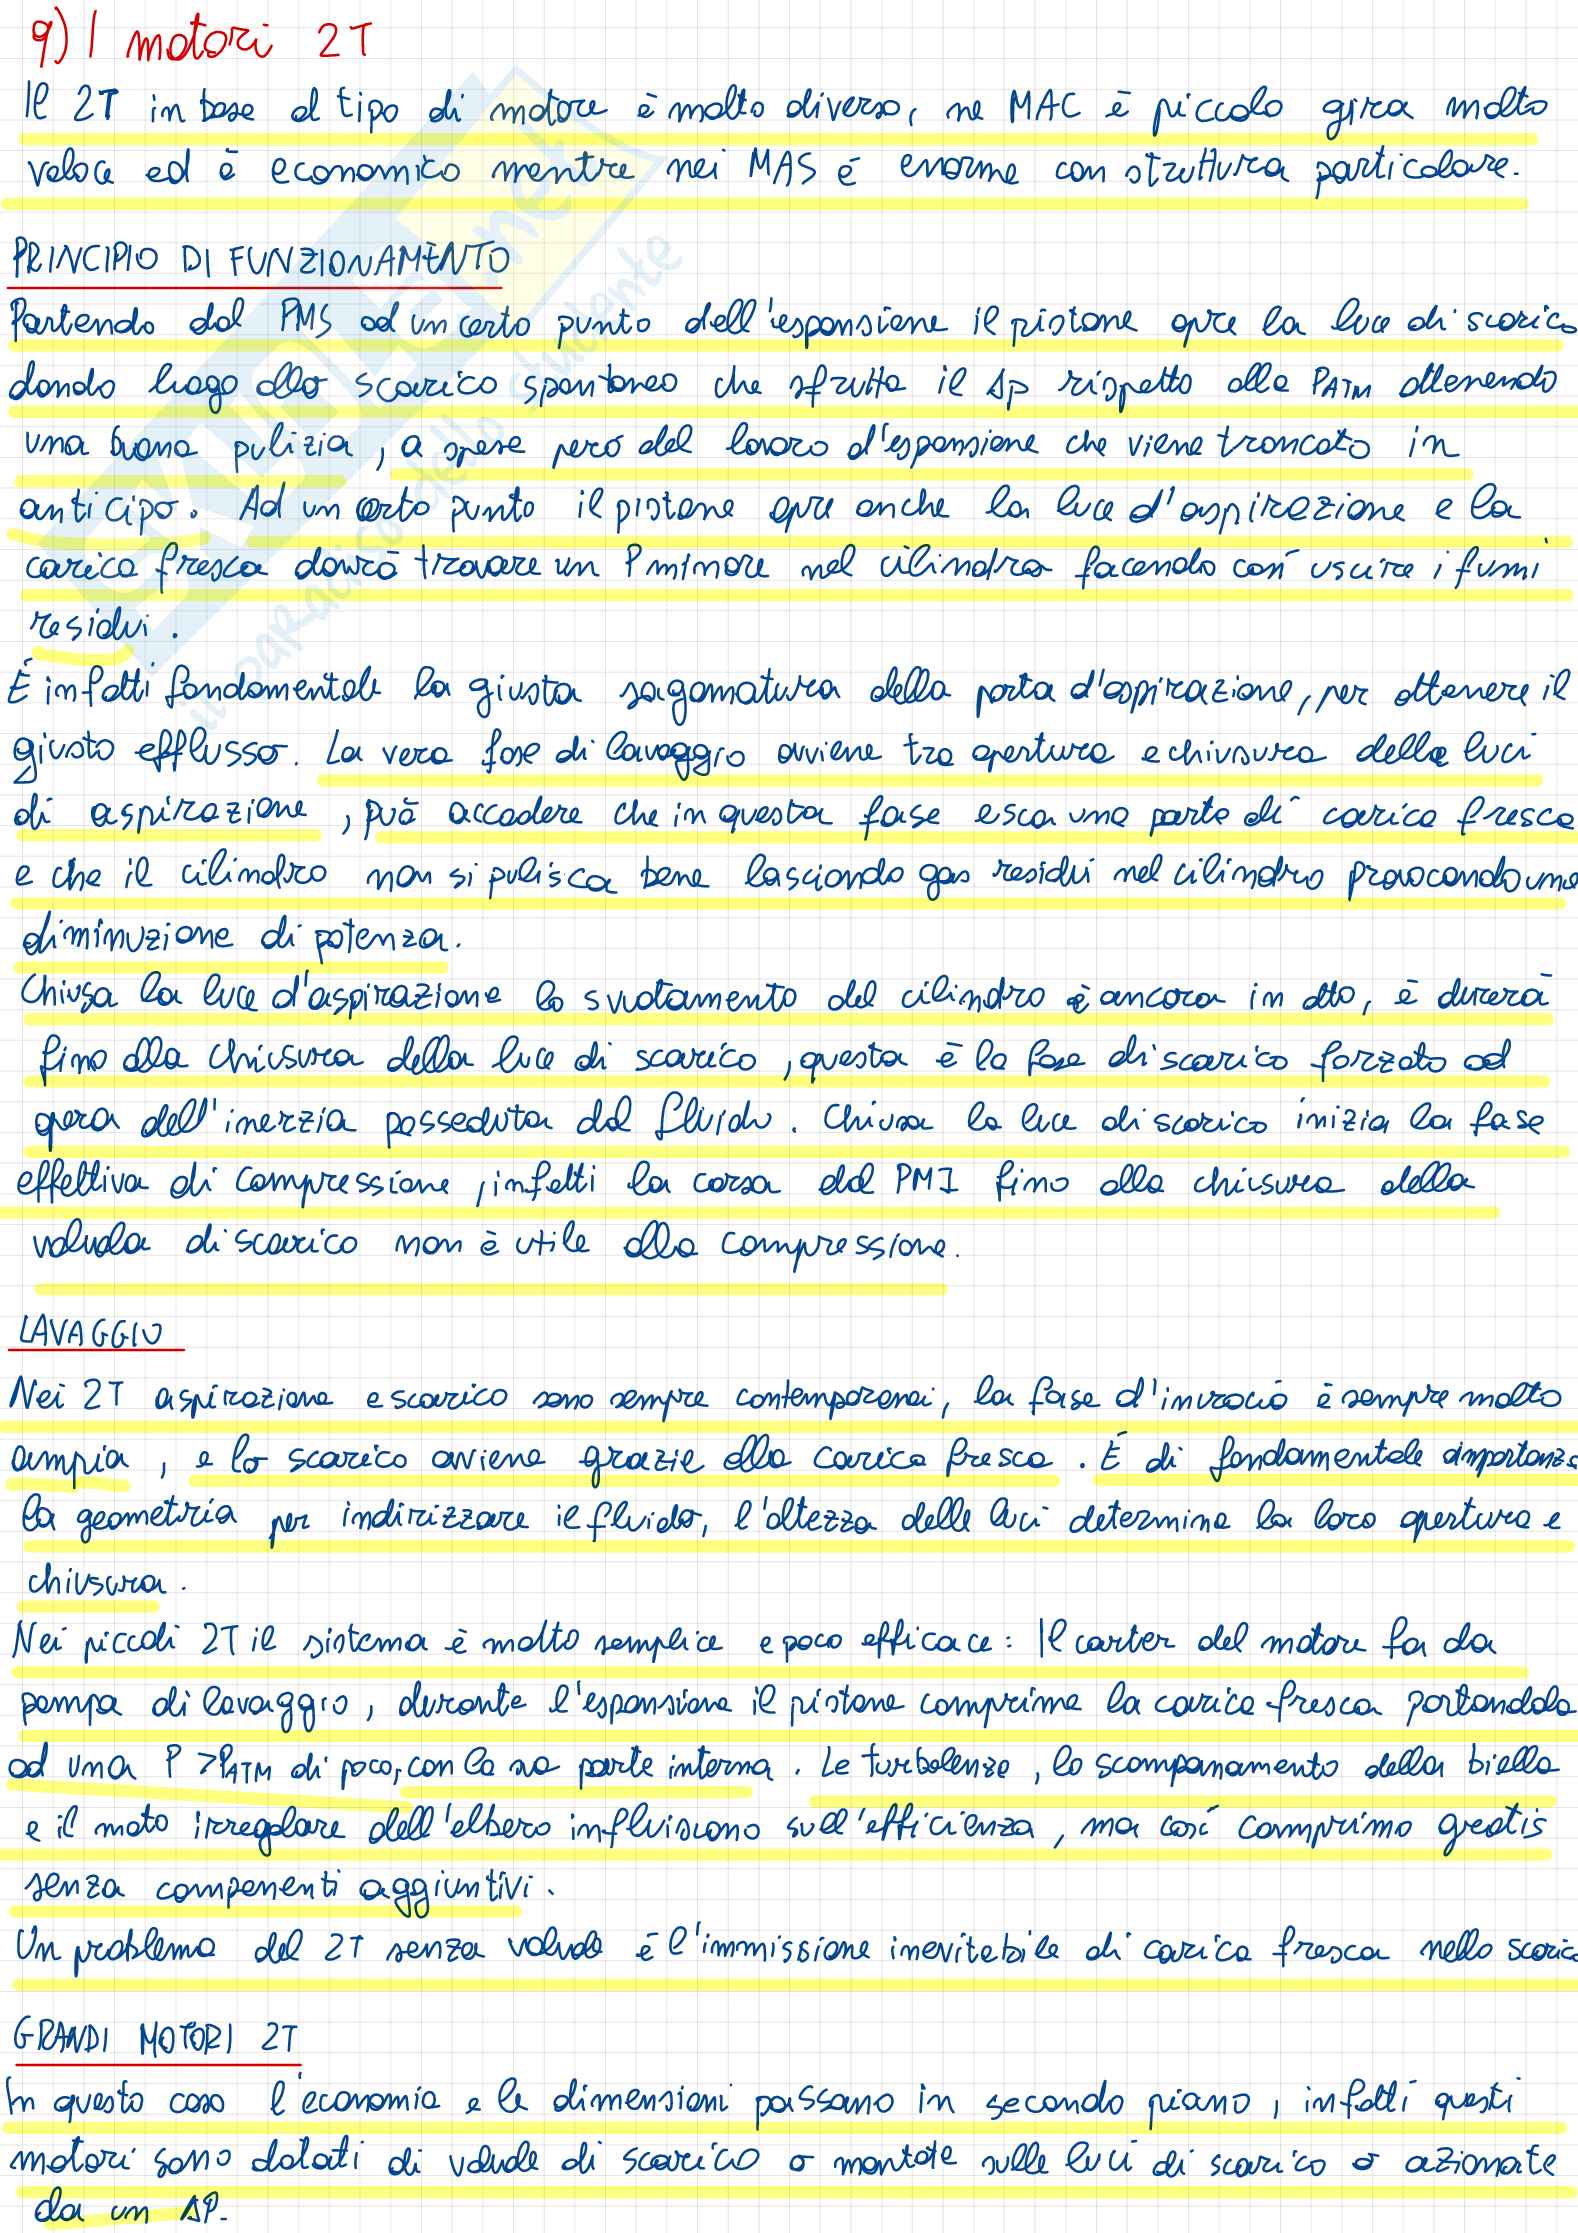 9) I motori 2T
Il 2T in base al tipo di motore è molto diverso, ne MAC è piccolo gira molto
veloce ed è economico mentre nei MAS è enorme con struttura particolare.
PRINCIPIO DI FUNZIONAMENTO
Partendo dal PMS ad un certo punto dell'espansione il pistone apre la luce di scarico
dando luogo allo scarico spontaneo che sfrutta il Δp rispetto alla PATM ottenendo
una buona pulizia, a spese però del lavoro d'espansione che viene troncato in
anticipo. Ad un certo punto il pistone apre anche la luce d'aspirazione e la
carica fresca dovrà trovare un P minore nel cilindro facendo così uscire i fumi
residui.
È infatti fondamentale la giusta sagomatura della porta d'aspirazione, per ottenere il
giusto efflusso. La vera fase di lavaggio avviene tra apertura e chiusura delle luci
di aspirazione, può accadere che in questa fase esca una parte di carica fresca
e che il cilindro non si pulisca bene lasciando gas residui nel cilindro provocando una
diminuzione di potenza.
Chiusa la luce d'aspirazione lo svuotamento del cilindro è ancora in atto, è durerà
fino alla chiusura della luce di scarico, questa è la fase di scarico forzato ad
opera dell'inerzia posseduta dal fluido. Chiusa la luce di scarico inizia la fase
effettiva di compressione, infatti la corsa dal PMI fino alla chiusura della
valvola di scarico non è utile alla compressione.
LAVAGGIO
Nei 2T aspirazione e scarico sono sempre contemporanei, la fase d'incrocio è sempre molto
ampia, e lo scarico avviene grazie alla carica fresca. È di fondamentale importanza
la geometria per indirizzare il fluido, l'altezza delle luci determina la loro apertura e
chiusura.
Nei piccoli 2T il sistema è molto semplice e poco efficace: Il carter del motore fa da
pompa di lavaggio, durante l'espansione il pistone comprime la carica fresca portandola
ad una P >PATM di poco, con la sua parte interna. Le turbolenze, lo scampanamento della biella
e il moto irregolare dell'albero influiscono sull'efficienza, ma così comprimo gratis
senza componenti aggiuntivi.
Un problema del 2T senza valvole è l'immissione inevitabile di carica fresca nello scarico
GRANDI MOTORI 2T
In questo caso l'economia e le dimensioni passano in secondo piano, infatti questi
motori sono dotati di valvole di scarico o montate sulle luci di scarico o azionate
da un ΔP.